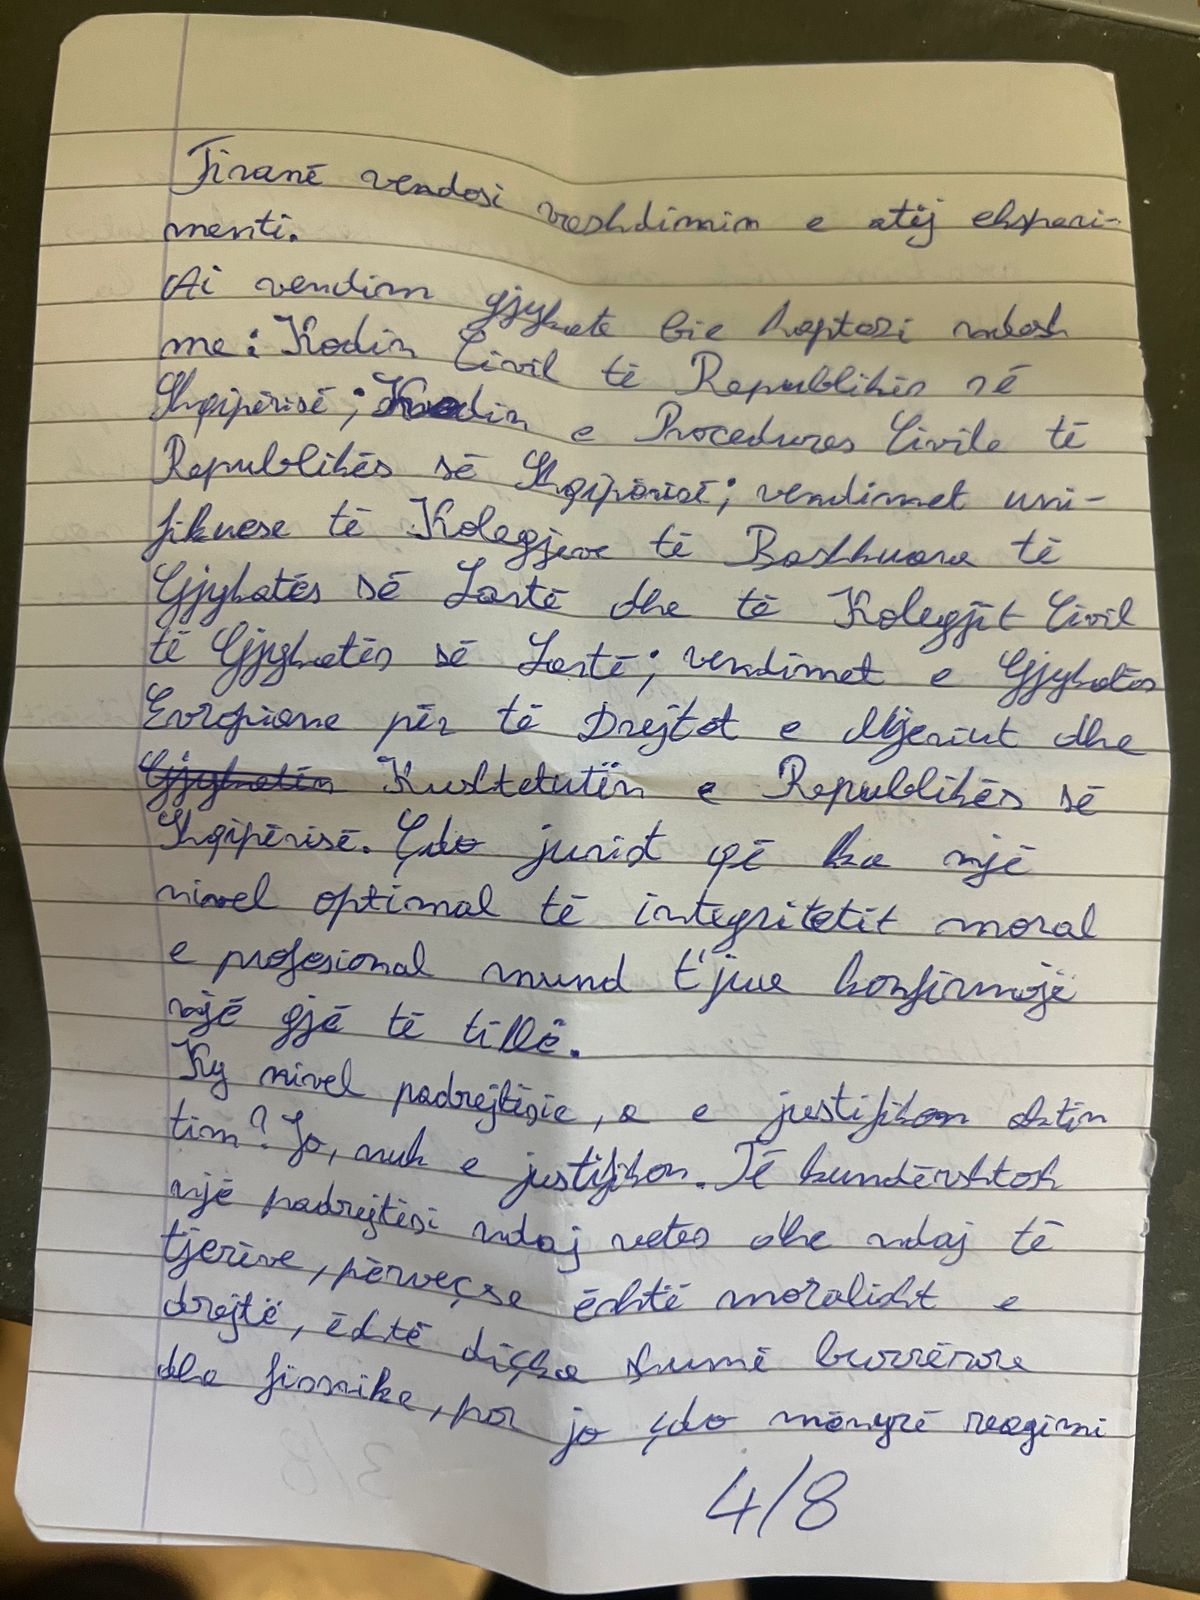 Tiranë vendosi vazhdimin e atij eksperi-
menti.
Ai vendim gjykate bie haptazi ndesh
me: Kodin Civil të Republikës së
Shqipërisë; Kodin e Procedures Civile të
Republikës së Shqipërisë; vendimet uni-
fikuese të Kolegjeve të Bashkuara të
Gjykatës së Lartë dhe të Kolegjit Civil
të Gjykatës së Lartë; vendimet e Gjykatës
Evropiane për të Drejtat e Njeriut dhe
Gjykatën Kushtetutën e Republikës së
Shqipërisë. Çdo jurist që ka një
nivel optimal të integritetit moral
e profesional mund t'jua konfirmojë
një gjë të tillë.
Ky nivel padrejtësie, a e justifikon aktin
tim? Jo, nuk e justifikon. Të kundërshtosh
një padrejtësi ndaj vetes dhe ndaj të
tjerëve, përveçse është moralisht e
drejtë, është diçka shumë burrërore
dhe fisnike, por jo çdo mënyrë reagimi
4/8